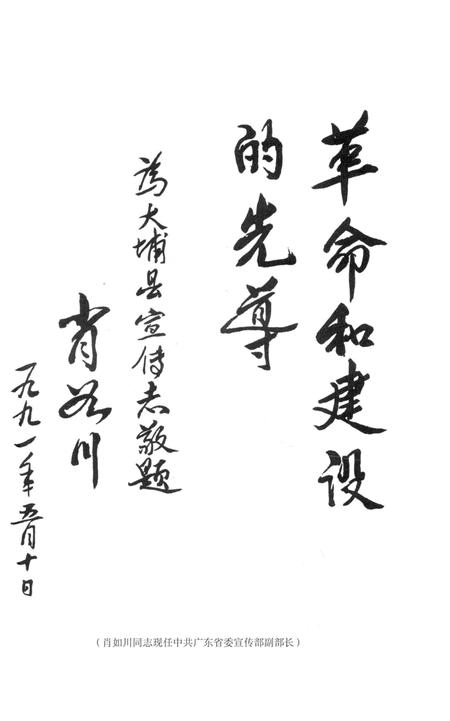 革命和建设
的先导
为大埔县宣传志敬题
肖如川
一九九一年五月十日
（肖如川同志现任中共广东省委宣传部副部长）